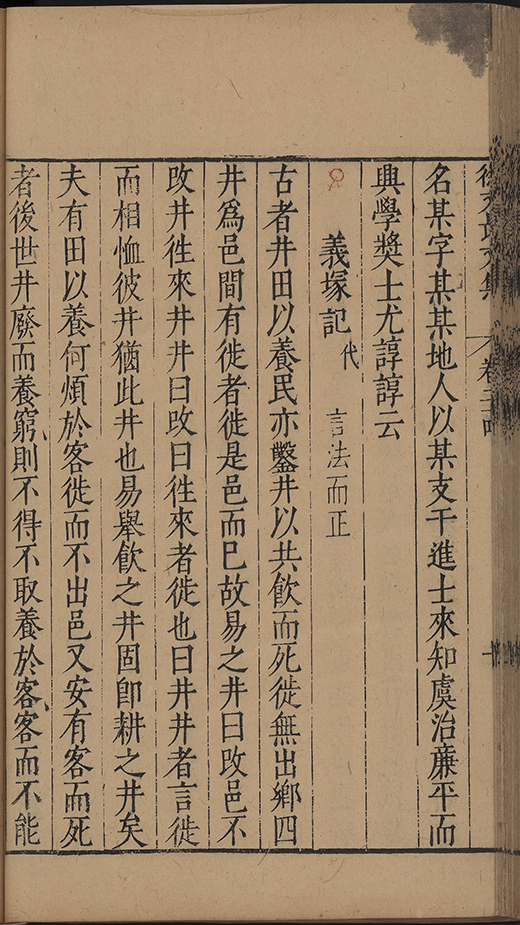 名某字某某地人以某支干進士來知虞治廉平而
興學奬士尤諄諄云
義塚記代 言法而正
古者井田以養民亦鑿井以共飲而死徙無出鄉四
井爲邑間有徙者徙是邑而已故易之井曰改邑不
改井徃來井井曰改曰徃來者徙也曰井井者言徙
而相恤彼井猶此井也易舉飲之井固卽耕之井矣
夫有田以養何煩於客徙而不出邑又安有客而死
者後世井廢而養窮則不得不取養於客客而不能